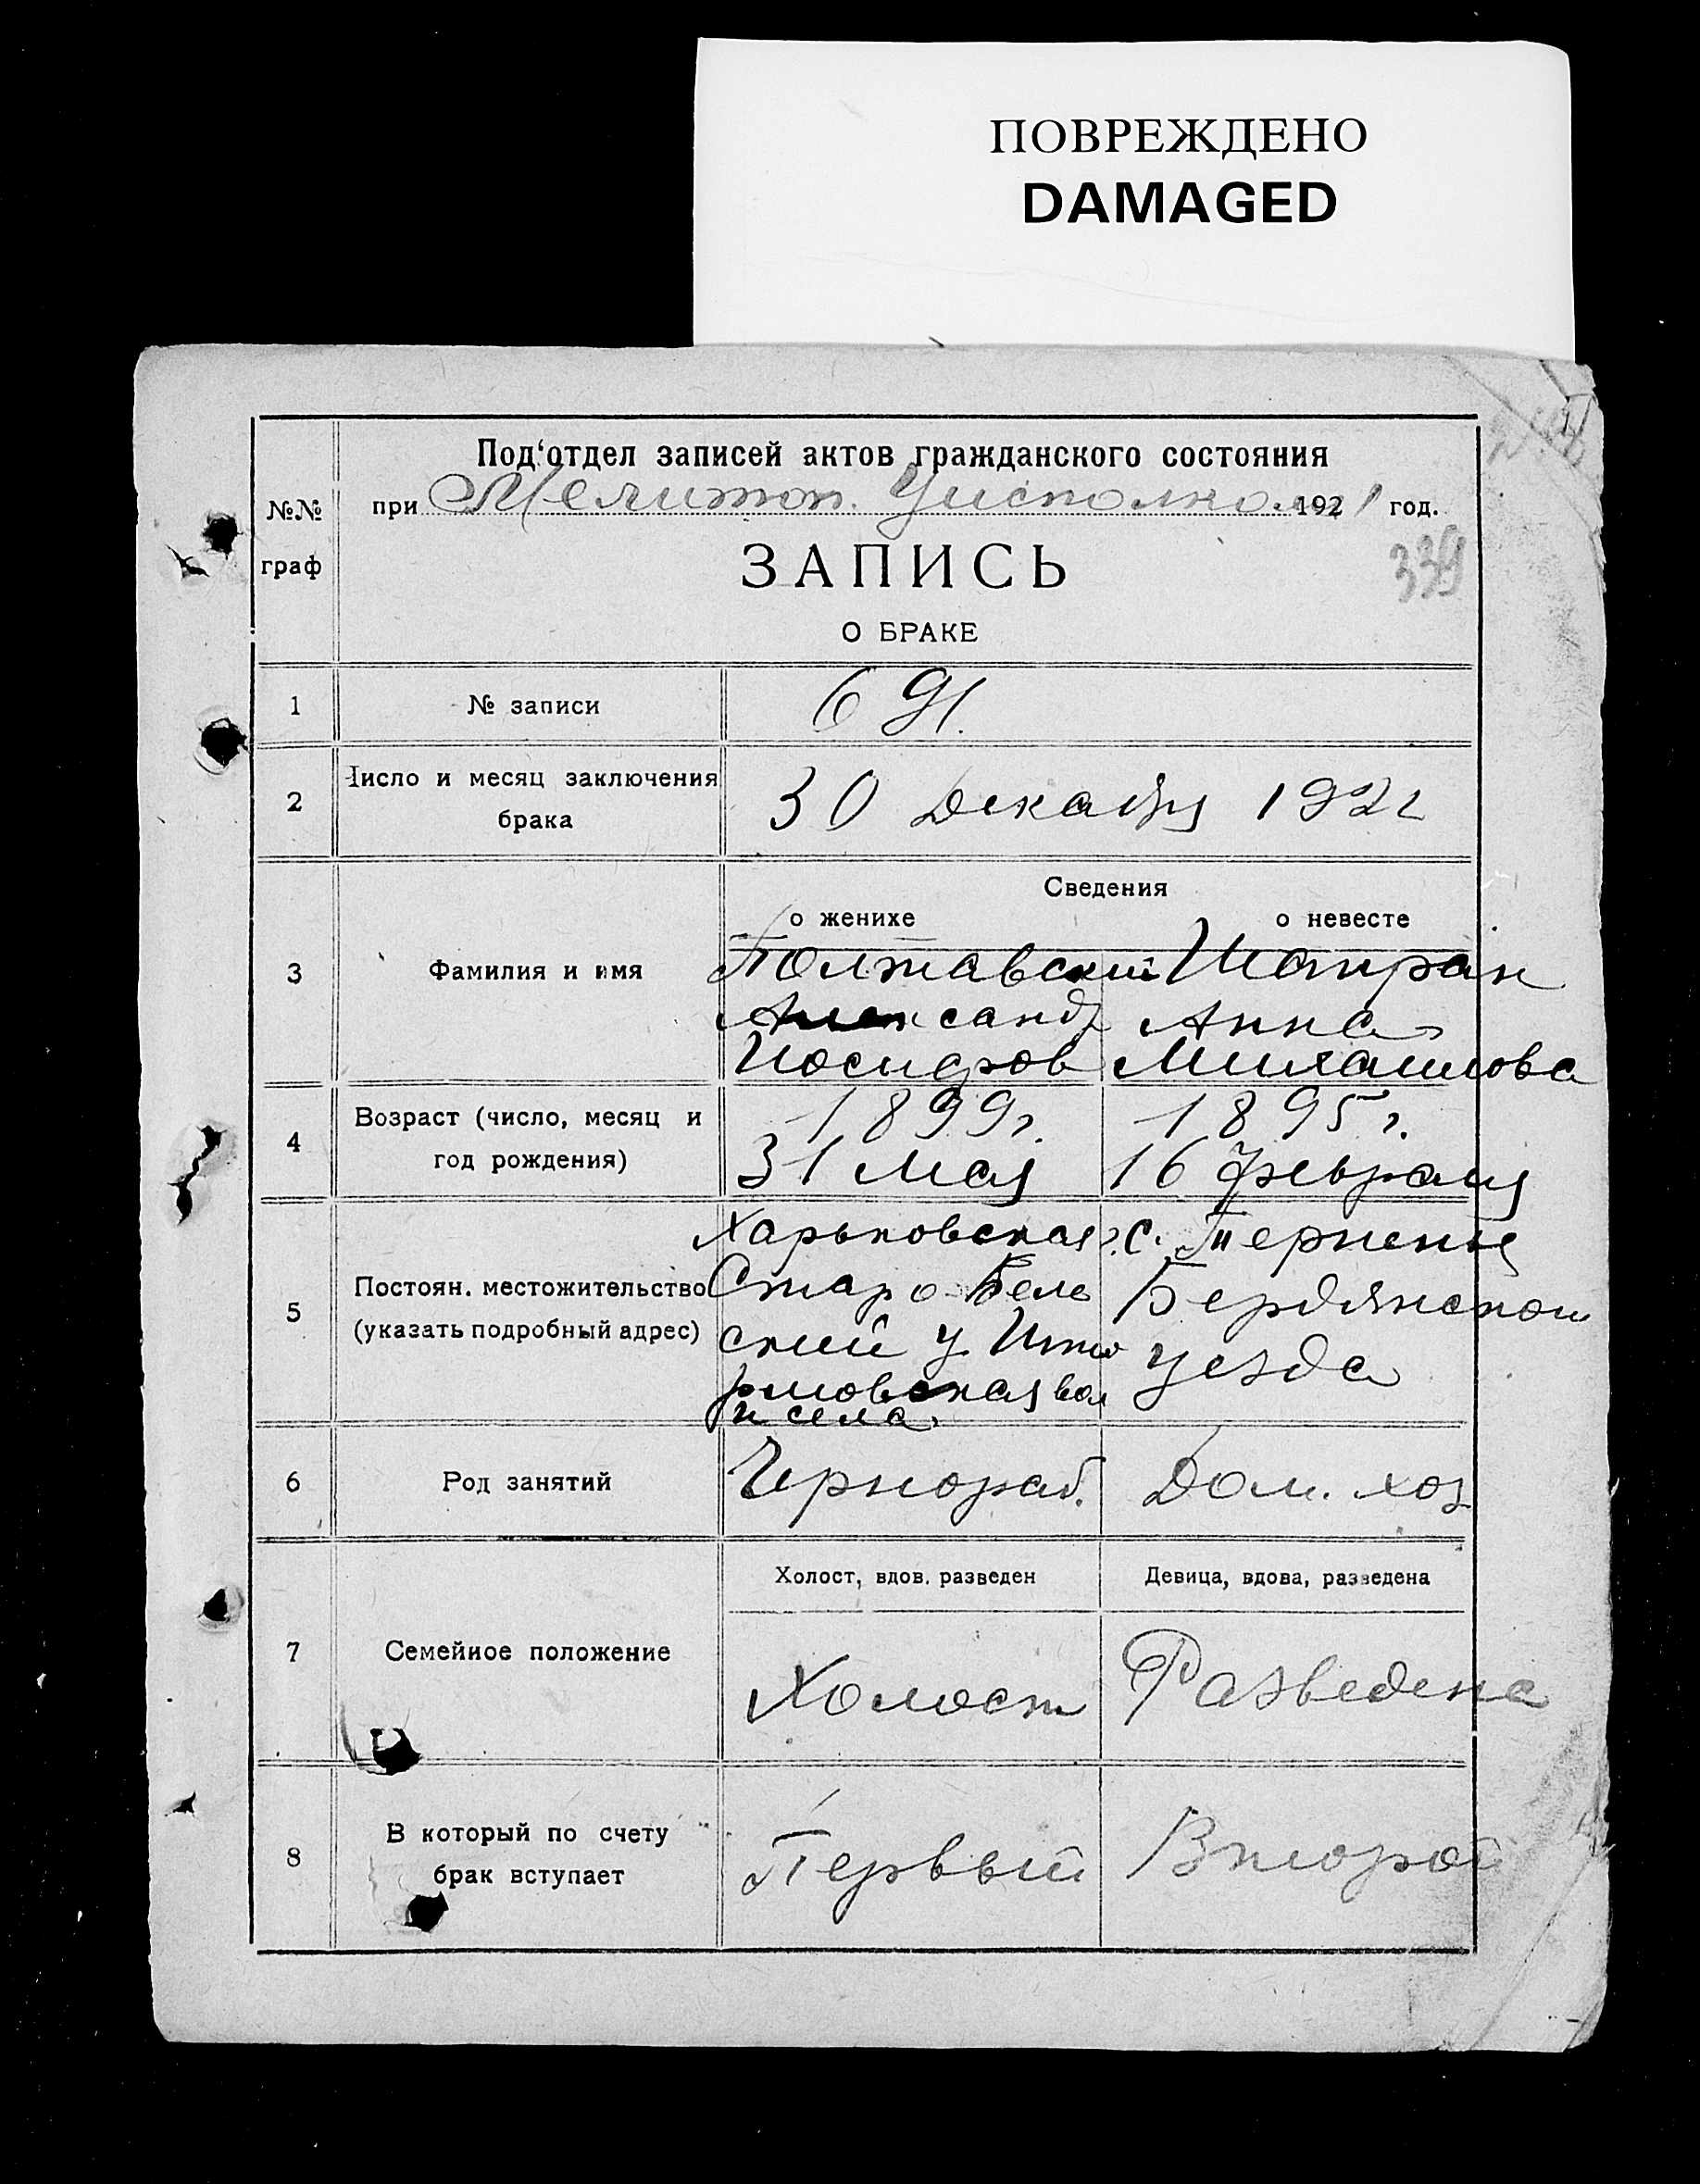 ПОВРЕЖДЕНО
DAMAGED
Под‘отдел записей актов гражданского состояния
№№ при Мелитоп. Уисполком 1921 год.
граф
ЗАПИСЬ
339
О БРАКЕ
1 № записи 691.
2 Число и месяц заключения брака 30 Декабря 1921
Сведения
о женихе о невесте
3 Фамилия и имя Полтавский Шапран
Александр Анна
Иосифов Михаилова
4 Возраст (число, месяц и год рождения) 1899г. 1895 г.
31 Мая 16 февраля
Харьковская г. С. Терпенье
5 Постоян. местожительство Старо-Бель Бердянском
(указать подробный адрес) ский у уезда
вол
и села
6 Род занятий Чрнораб. Дом. хоз
Холост, вдов, разведен Девица, вдова, разведена
7 Семейное положение Холост Разведена
8 В который по счету
брак вступает Первый Второй